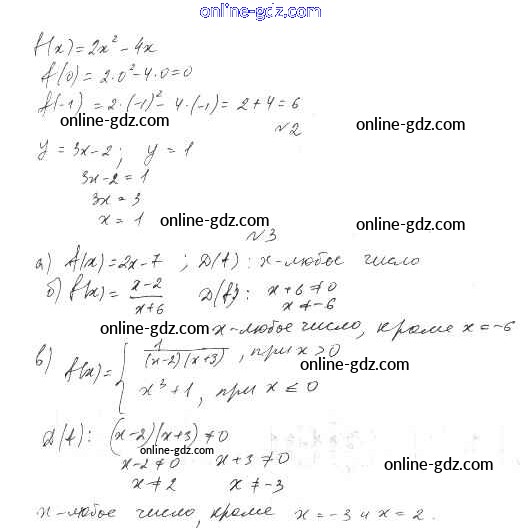 online-gdz.com
f(x)=2x²-4x
f(0)=2·0²-4·0=0
f(-1)=2·(-1)²-4·(-1)=2+4=6
online-gdz.com
№2
online-gdz.com
y=3x-2; y=1
3x-2=1
3x=3
x=1
online-gdz.com
№3
online-gdz.com
а) f(x)=2x-7; D(f): x-любое число
б) f(x)=\frac{x-2}{x+6} D(f): x+6≠0
x≠-6
online-gdz.com
online-gdz.com
x-любое число, кроме x=-6
в) f(x)={ \frac{1}{(x-2)(x+3)}, при x>0
x³+1, при x≤0
online-gdz.com
online-gdz.com
D(f): (x-2)(x+3)≠0
x-2≠0 x+3≠0
x≠2 x≠-3
online-gdz.com
online-gdz.com
x-любое число, кроме x=-3 и x=2.